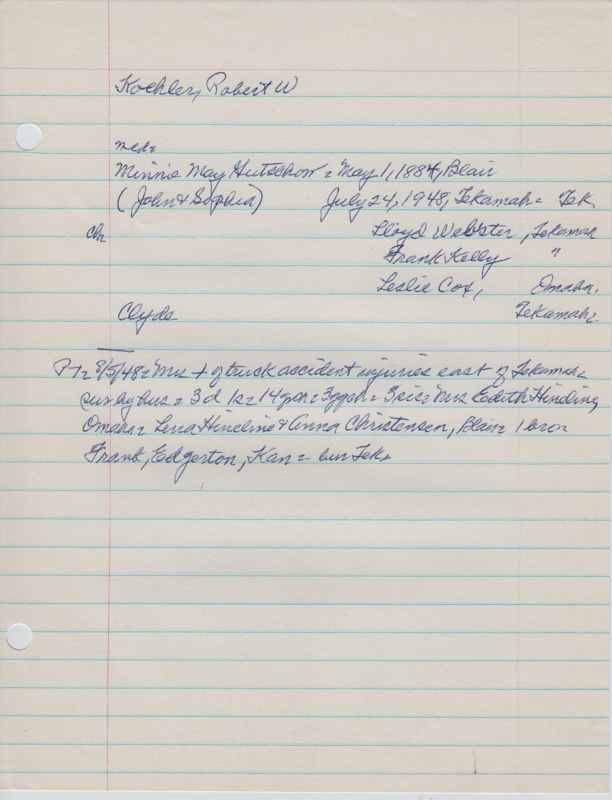 Koehler, Robert W
med=
Minnie May Hutschow = May 1, 1884, Blair
(John & Sophia) July 24, 1948, Tekamah = Tek
Ch Lloyd Webster, Tekamah
Frank Kelly "
Leslie Cox, Omaha,
Clyde Tekamah=
PT= 8/5/48= Mrs + of truck accident injuries east of Tekamah=
sur by hus= 3 d 1s= 14 gch= 3ggch= 3 sis= Mrs Edith Hineline,
Omaha= Lena Hineline & Anna Christensen, Blair= 1 bro=
Frank, Edgerton, Kan= bur Tek